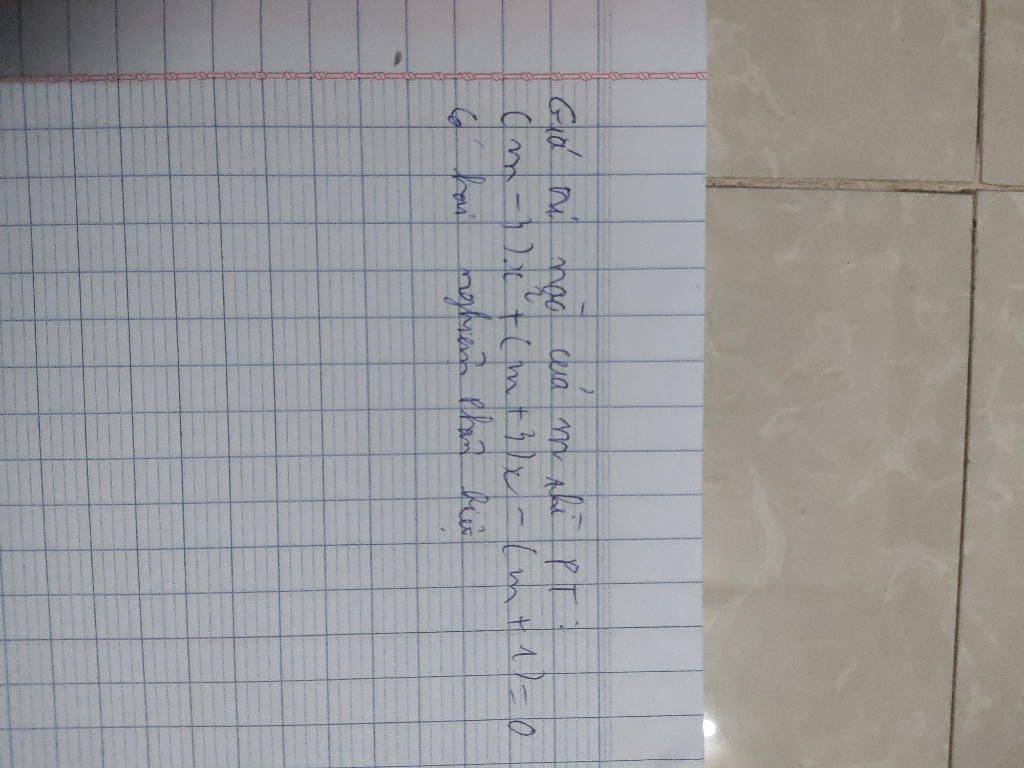 Giá trị nào của m thì PT :
(m - 3)x² + (m + 3)x - (m + 1) = 0
Có hai nghiệm phân biệt